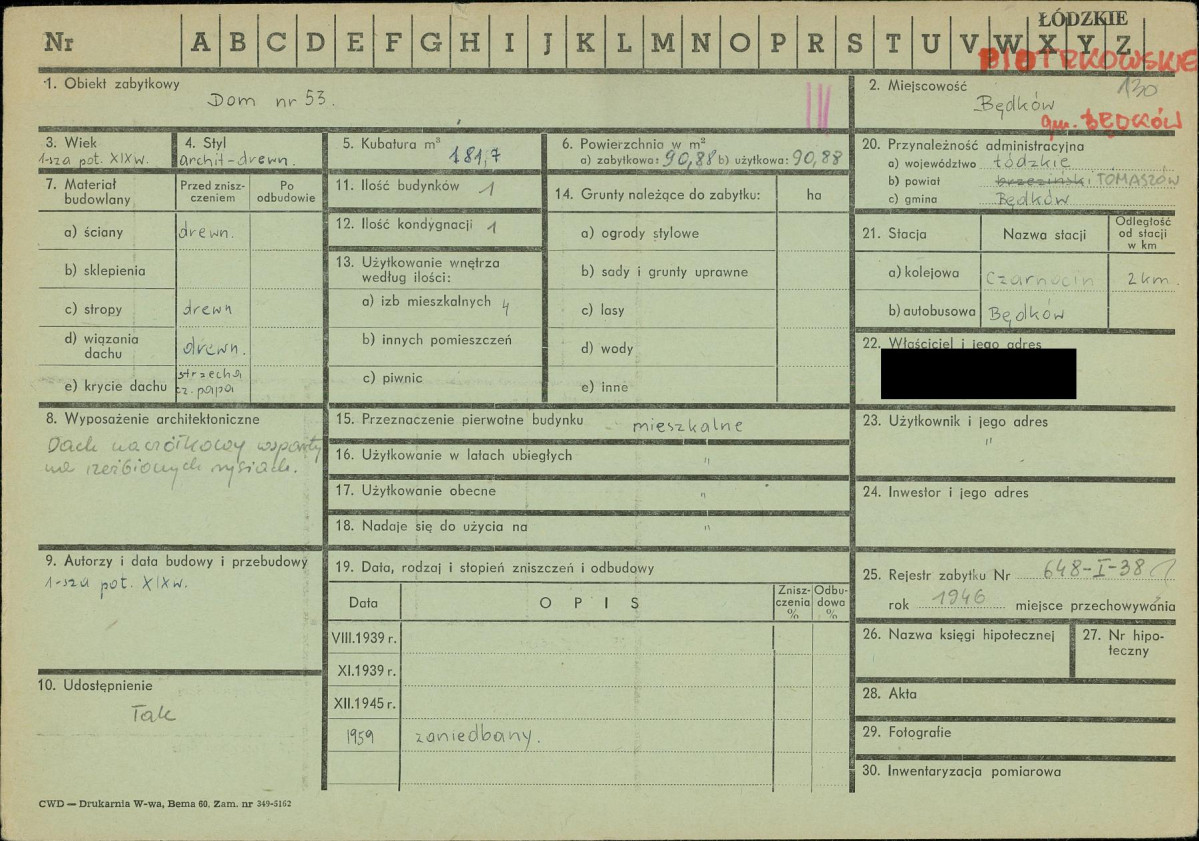 ŁÓDZKIE
Nr A B C D E F G H I J K L M N O P R S T U V W X Y Z
PIOTRKOWSKIE
1. Obiekt zabytkowy
Dom nr 53.
III
2. Miejscowość
130
Będków
gm. BĘDKÓW
3. Wiek
1-sza poł. XIX w.
4. Styl
archit-drewn.
5. Kubatura m³
181,7
6. Powierzchnia w m²
a) zabytkowa: 90,88 b) użytkowa: 90,88
20. Przynależność administracyjna
a) województwo łódzkie
b) powiat brzeziński TOMASZÓW
c) gmina Będków
7. Materiał budowlany
Przed znisz-
czeniem
Po
odbudowie
a) ściany drewn.
b) sklepienia
c) stropy drewn
d) wiązania
dachu drewn.
e) krycie dachu strzecha
cz. papa
11. Ilość budynków 1
12. Ilość kondygnacji 1
13. Użytkowanie wnętrza
według ilości:
a) izb mieszkalnych 4
b) innych pomieszczeń
c) piwnic
14. Grunty należące do zabytku: ha
a) ogrody stylowe
b) sady i grunty uprawne
c) lasy
d) wody
e) inne
21. Stacja Nazwa stacji Odległość
od stacji
w km
a) kolejowa Czarnocin 2 km.
b) autobusowa Będków
22. Właściciel i jego adres
8. Wyposażenie architektoniczne
Dach naczółkowy wsparty
na rzeźbionych rysiach.
15. Przeznaczenie pierwotne budynku mieszkalne
16. Użytkowanie w latach ubiegłych "
17. Użytkowanie obecne "
18. Nadaje się do użycia na "
23. Użytkownik i jego adres
"
24. Inwestor i jego adres
9. Autorzy i data budowy i przebudowy
1-sza poł. XIX w.
19. Data, rodzaj i stopień zniszczeń i odbudowy
Data O P I S Znisz-
czenia
% Odbu-
dowa
%
VIII.1939 r.
XI.1939 r.
XII.1945 r.
1959 zaniedbany.
25. Rejestr zabytku Nr 648-I-38
rok 1946 miejsce przechowywania
26. Nazwa księgi hipotecznej
27. Nr hipo-
teczny
10. Udostępnienie
Tak
28. Akta
29. Fotografie
30. Inwentaryzacja pomiarowa
CWD — Drukarnia W-wa, Bema 60, Zam. nr 349-5162